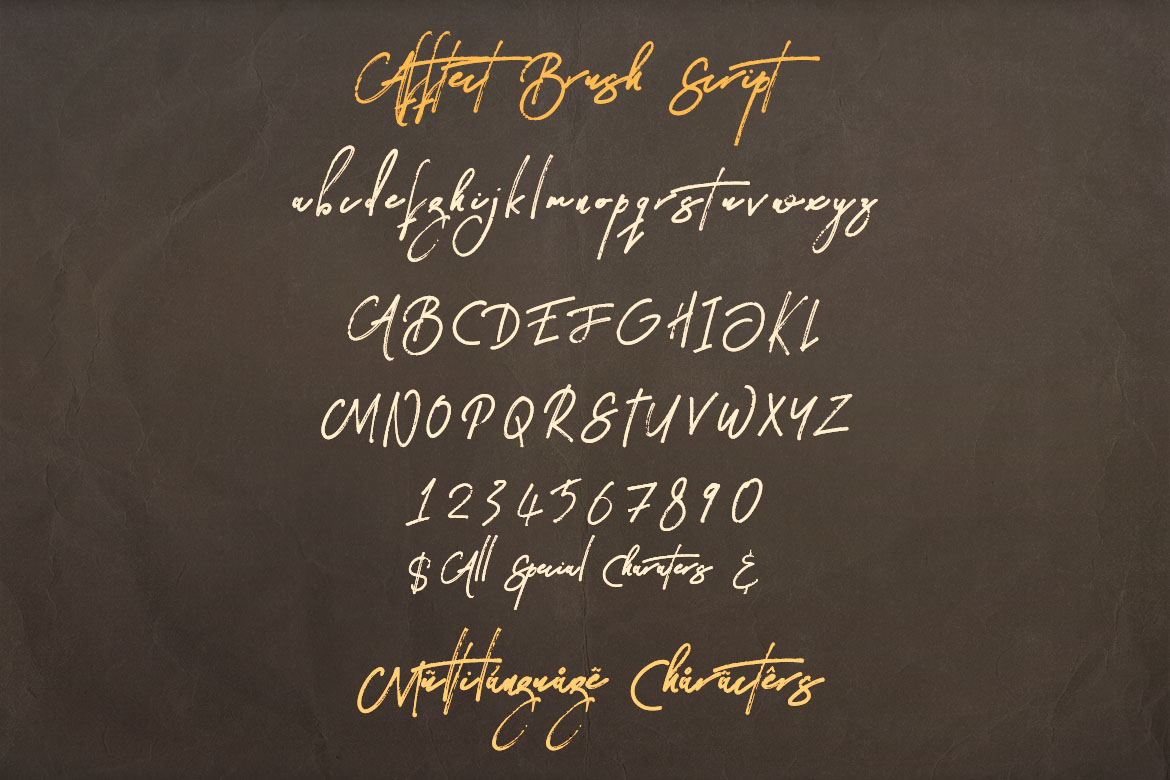 Afftect Brush Script
abcdefghijklmnopqrstuvwxyz
ABCDEFGHIJKL
MNOPQRSTUVWXYZ
1234567890
$ All Special Charaters &
Mũltilánguågẽ Chåräctêrs